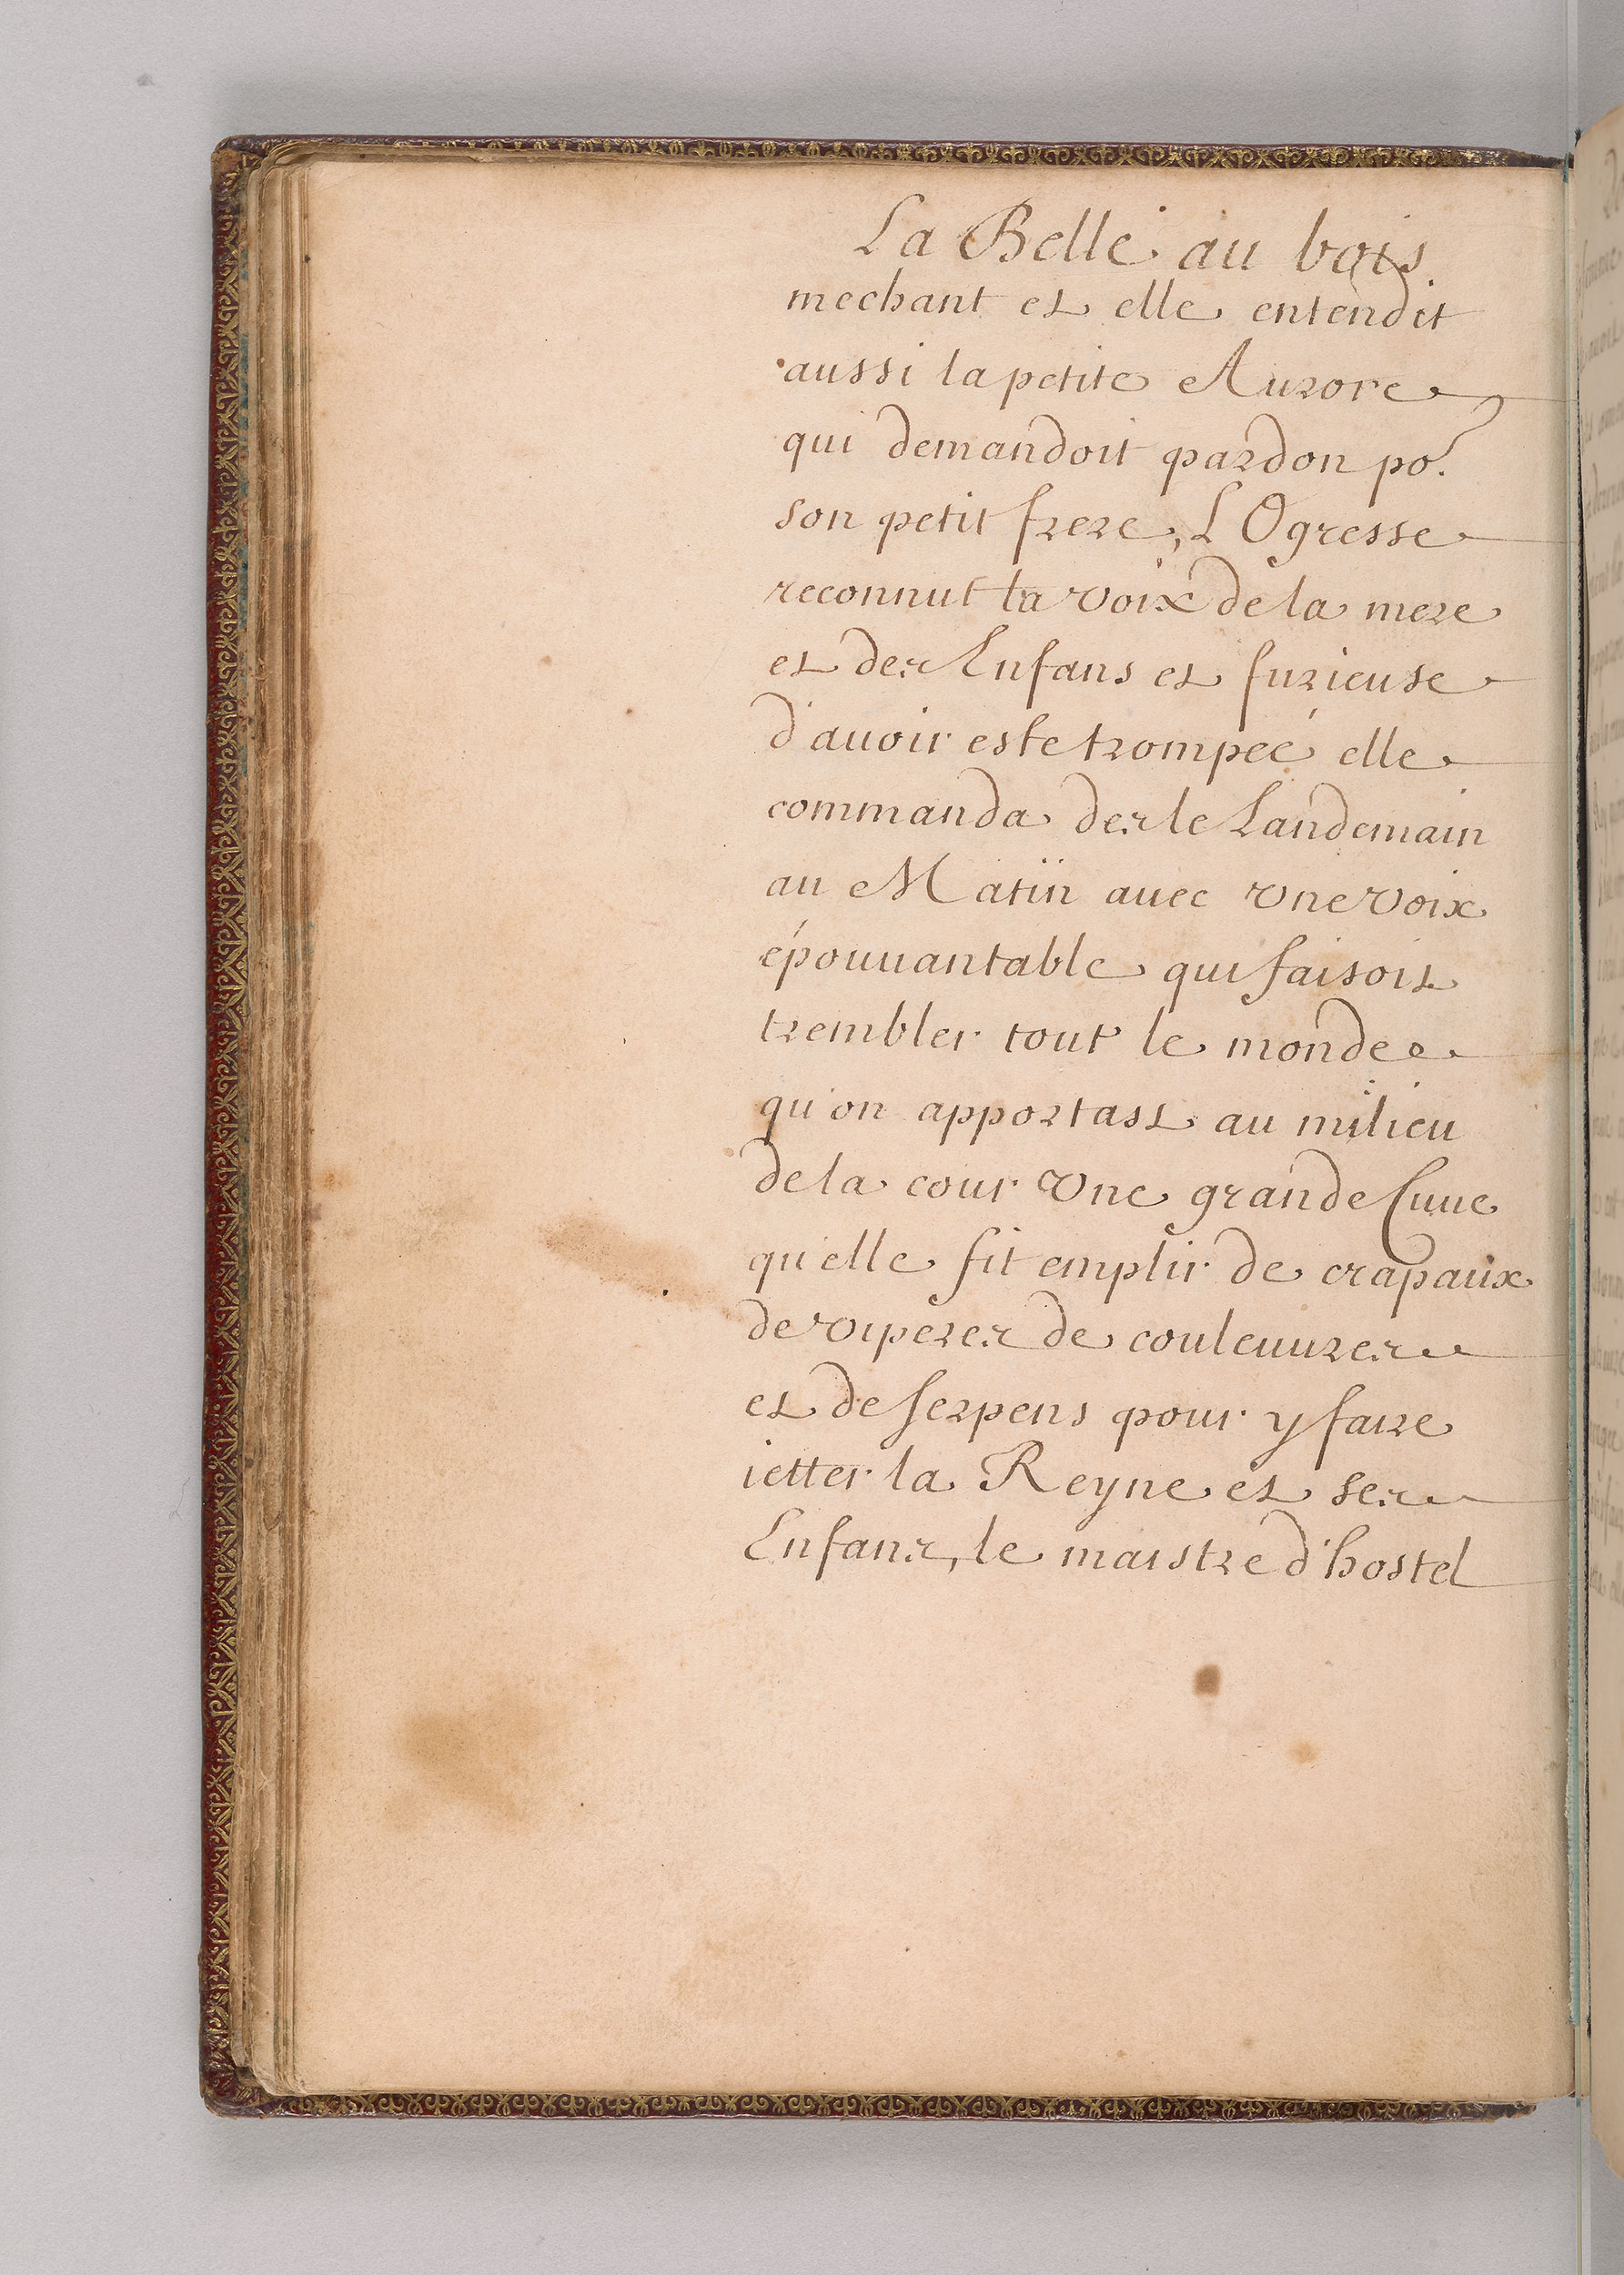 La Belle au bois
mechant et elle entendit
aussi la petite Aurore
qui demandoit pardon po.r
son petit frere, L Ogresse
reconnut la voix de la mere
et des Enfans et furieuse
d'auoir este trompeé elle
commanda des le Landemain
au Matin auec vne voix
épouuantable qui faisoit
trembler tout le monde
qu'on apportast au milieu
de la cour vne grande Cuue
qu'elle fit emplir de crapaux
de viperes de couleuures
et de serpens pour y faire
ietter la Reyne et ses
Enfans, le maistre d'hostel